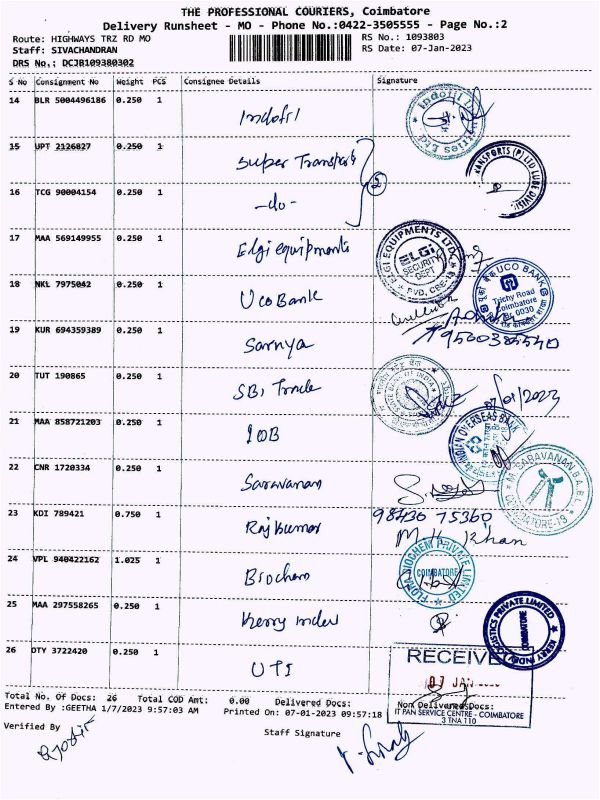 THE PROFESSIONAL COURIERS, Coimbatore
Delivery Runsheet - MO - Phone No.:0422-3505555 - Page No.:2
Route: HIGHWAYS TRZ RD MO
RS No.: 1093803
Staff: SIVACHANDRAN
RS Date: 07-Jan-2023
DRS No.: DCJB109380302
S No Consignment No Weight PCS Consignee Details Signature
14 BLR 5004496186 0.250 1 Indofil
15 UPT 2126827 0.250 1 Super Transports
16 TCG 90004154 0.250 1 -do-
2
17 MAA 569149955 0.250 1 Elgi equipments
ELGI EQUIPMENTS LTD
ELGi
SECURITY
DEPT
18 NKL 7975042 0.250 1 Uco Bank
UCO BANK
Trichy Road
Coimbatore
0030
19 KUR 694359389 0.250 1 Sarnya
9500385540
20 TUT 190865 0.250 1 SBI Trade
21 MAA 858721203 0.250 1 IOB
INDIAN OVERSEAS BANK
22 CNR 1720334 0.250 1 Saravanan
M. SARAVANAN B.A.BL.
COIMBATORE-18
23 KDI 789421 0.750 1 Rajkumar
98430 75360
Khan
24 VPL 940422162 1.025 1 Biochem
BIOCHEM PRIVATE LIMITED
COIMBATORE
25 MAA 297558265 0.250 1 Kerry Indev
KERRY INDEV LOGISTICS PRIVATE LIMITED
COIMBATORE
26 OTY 3722420 0.250 1 UTI
RECEIVED
07 JAN
IT PAN SERVICE CENTRE - COIMBATORE
3 TNA 110
Total No. Of Docs: 26 Total COD Amt: 0.00 Delivered Docs: Non Delivered Docs:
Entered By :GEETHA 1/7/2023 9:57:03 AM Printed On: 07-01-2023 09:57:18
Verified By
Staff Signature